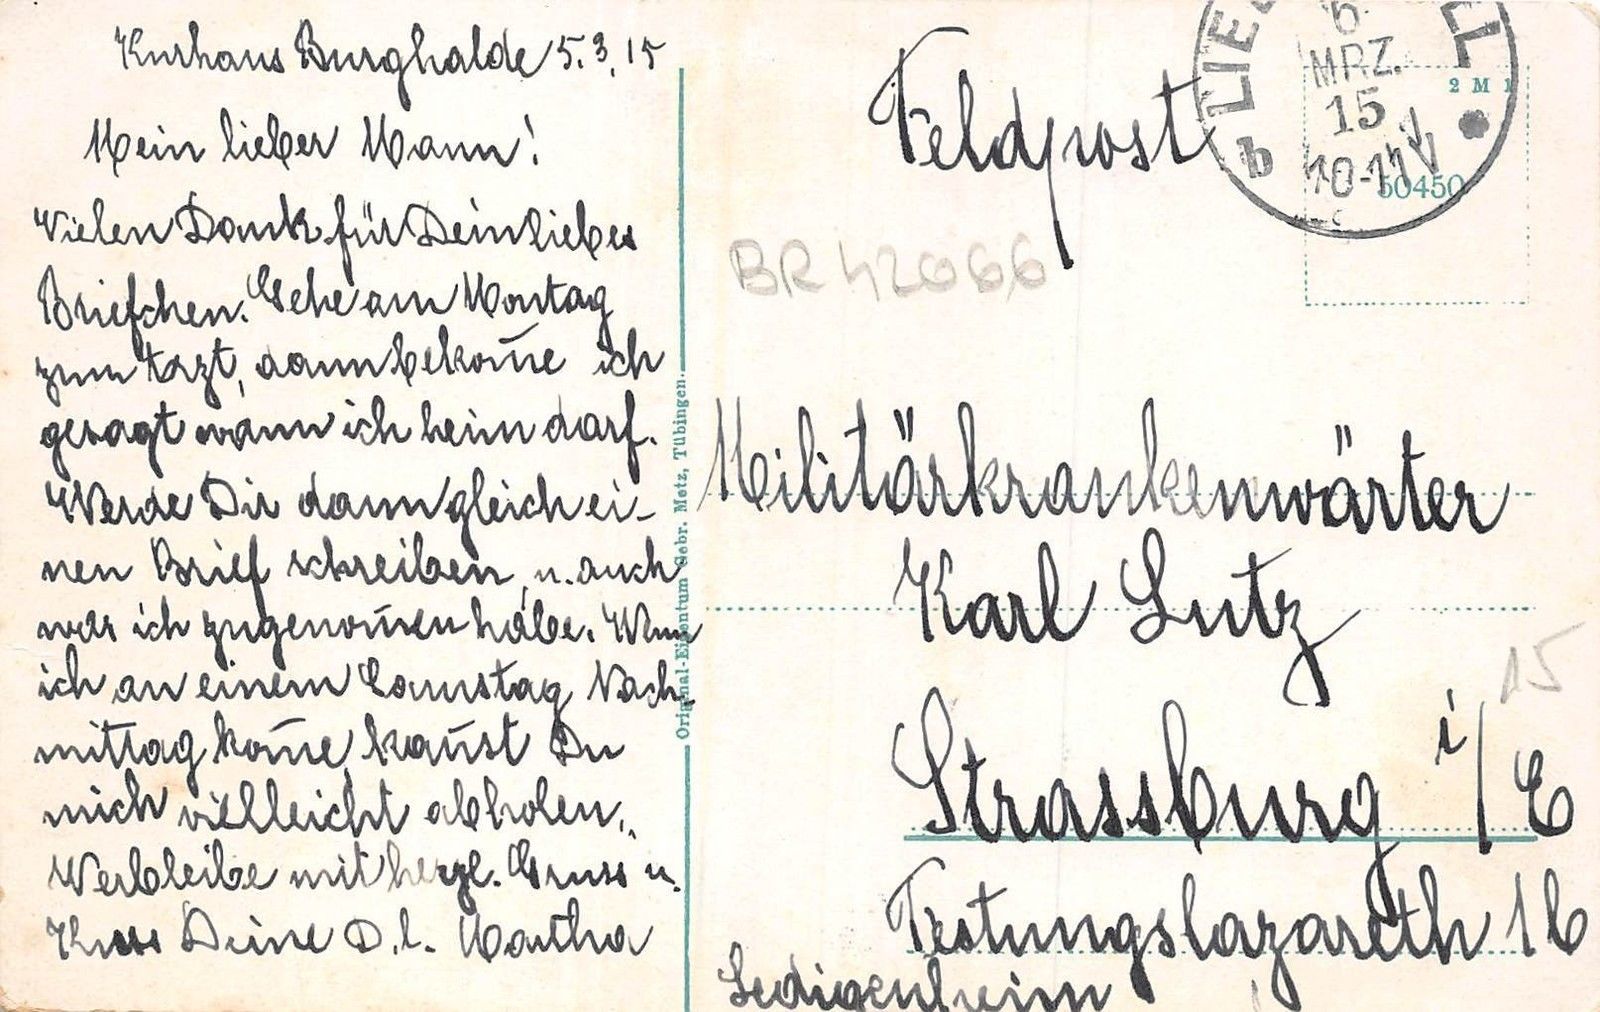 Kurhaus Burghalde 5.3.15
Mein lieber Mann!
Vielen Dank für Dein liebes
Briefchen. Gehe am Montag
zum Arzt, dann bekom̄e ich
gesagt wann ich heim darf.
Werde Dir dann gleich ei-
nen Brief schreiben, u. auch
was ich zugenom̄en habe. Wenn
ich an einem Samstag Nach-
mittag kom̄e, kan̄st Du
mich vielleicht abholen.
Verbleibe mit herzl. Gruss u.
Kuss Deine D. l. Martha
Original-Eigentum Gebr. Metz, Tübingen.
Feldpost
6
MRZ.
15
10-11 V
b
2 M 1
50450
BR 42066
Militärkrankenwärter
Karl Lutz
15
Strassburg i/E
Festungslazareth 16
Ledigenheim